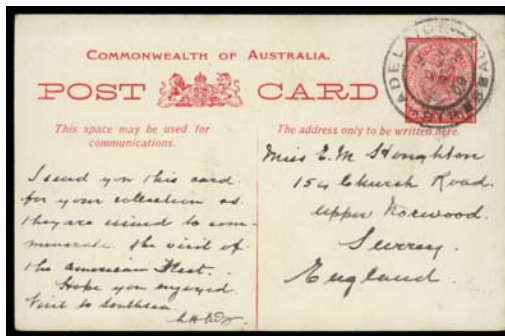 COMMONWEALTH OF AUSTRALIA.
POST CARD
This space may be used for
communications.
The address only to be written here.
I send you this card
for your collection as
they are issued to com-
memorate the visit of
the American Fleet.
Hope you enjoyed
visit to Southsea.
Miss E. M. Houghton
154 Church Road.
Upper Norwood.
Surrey.
England.
ADELAIDE